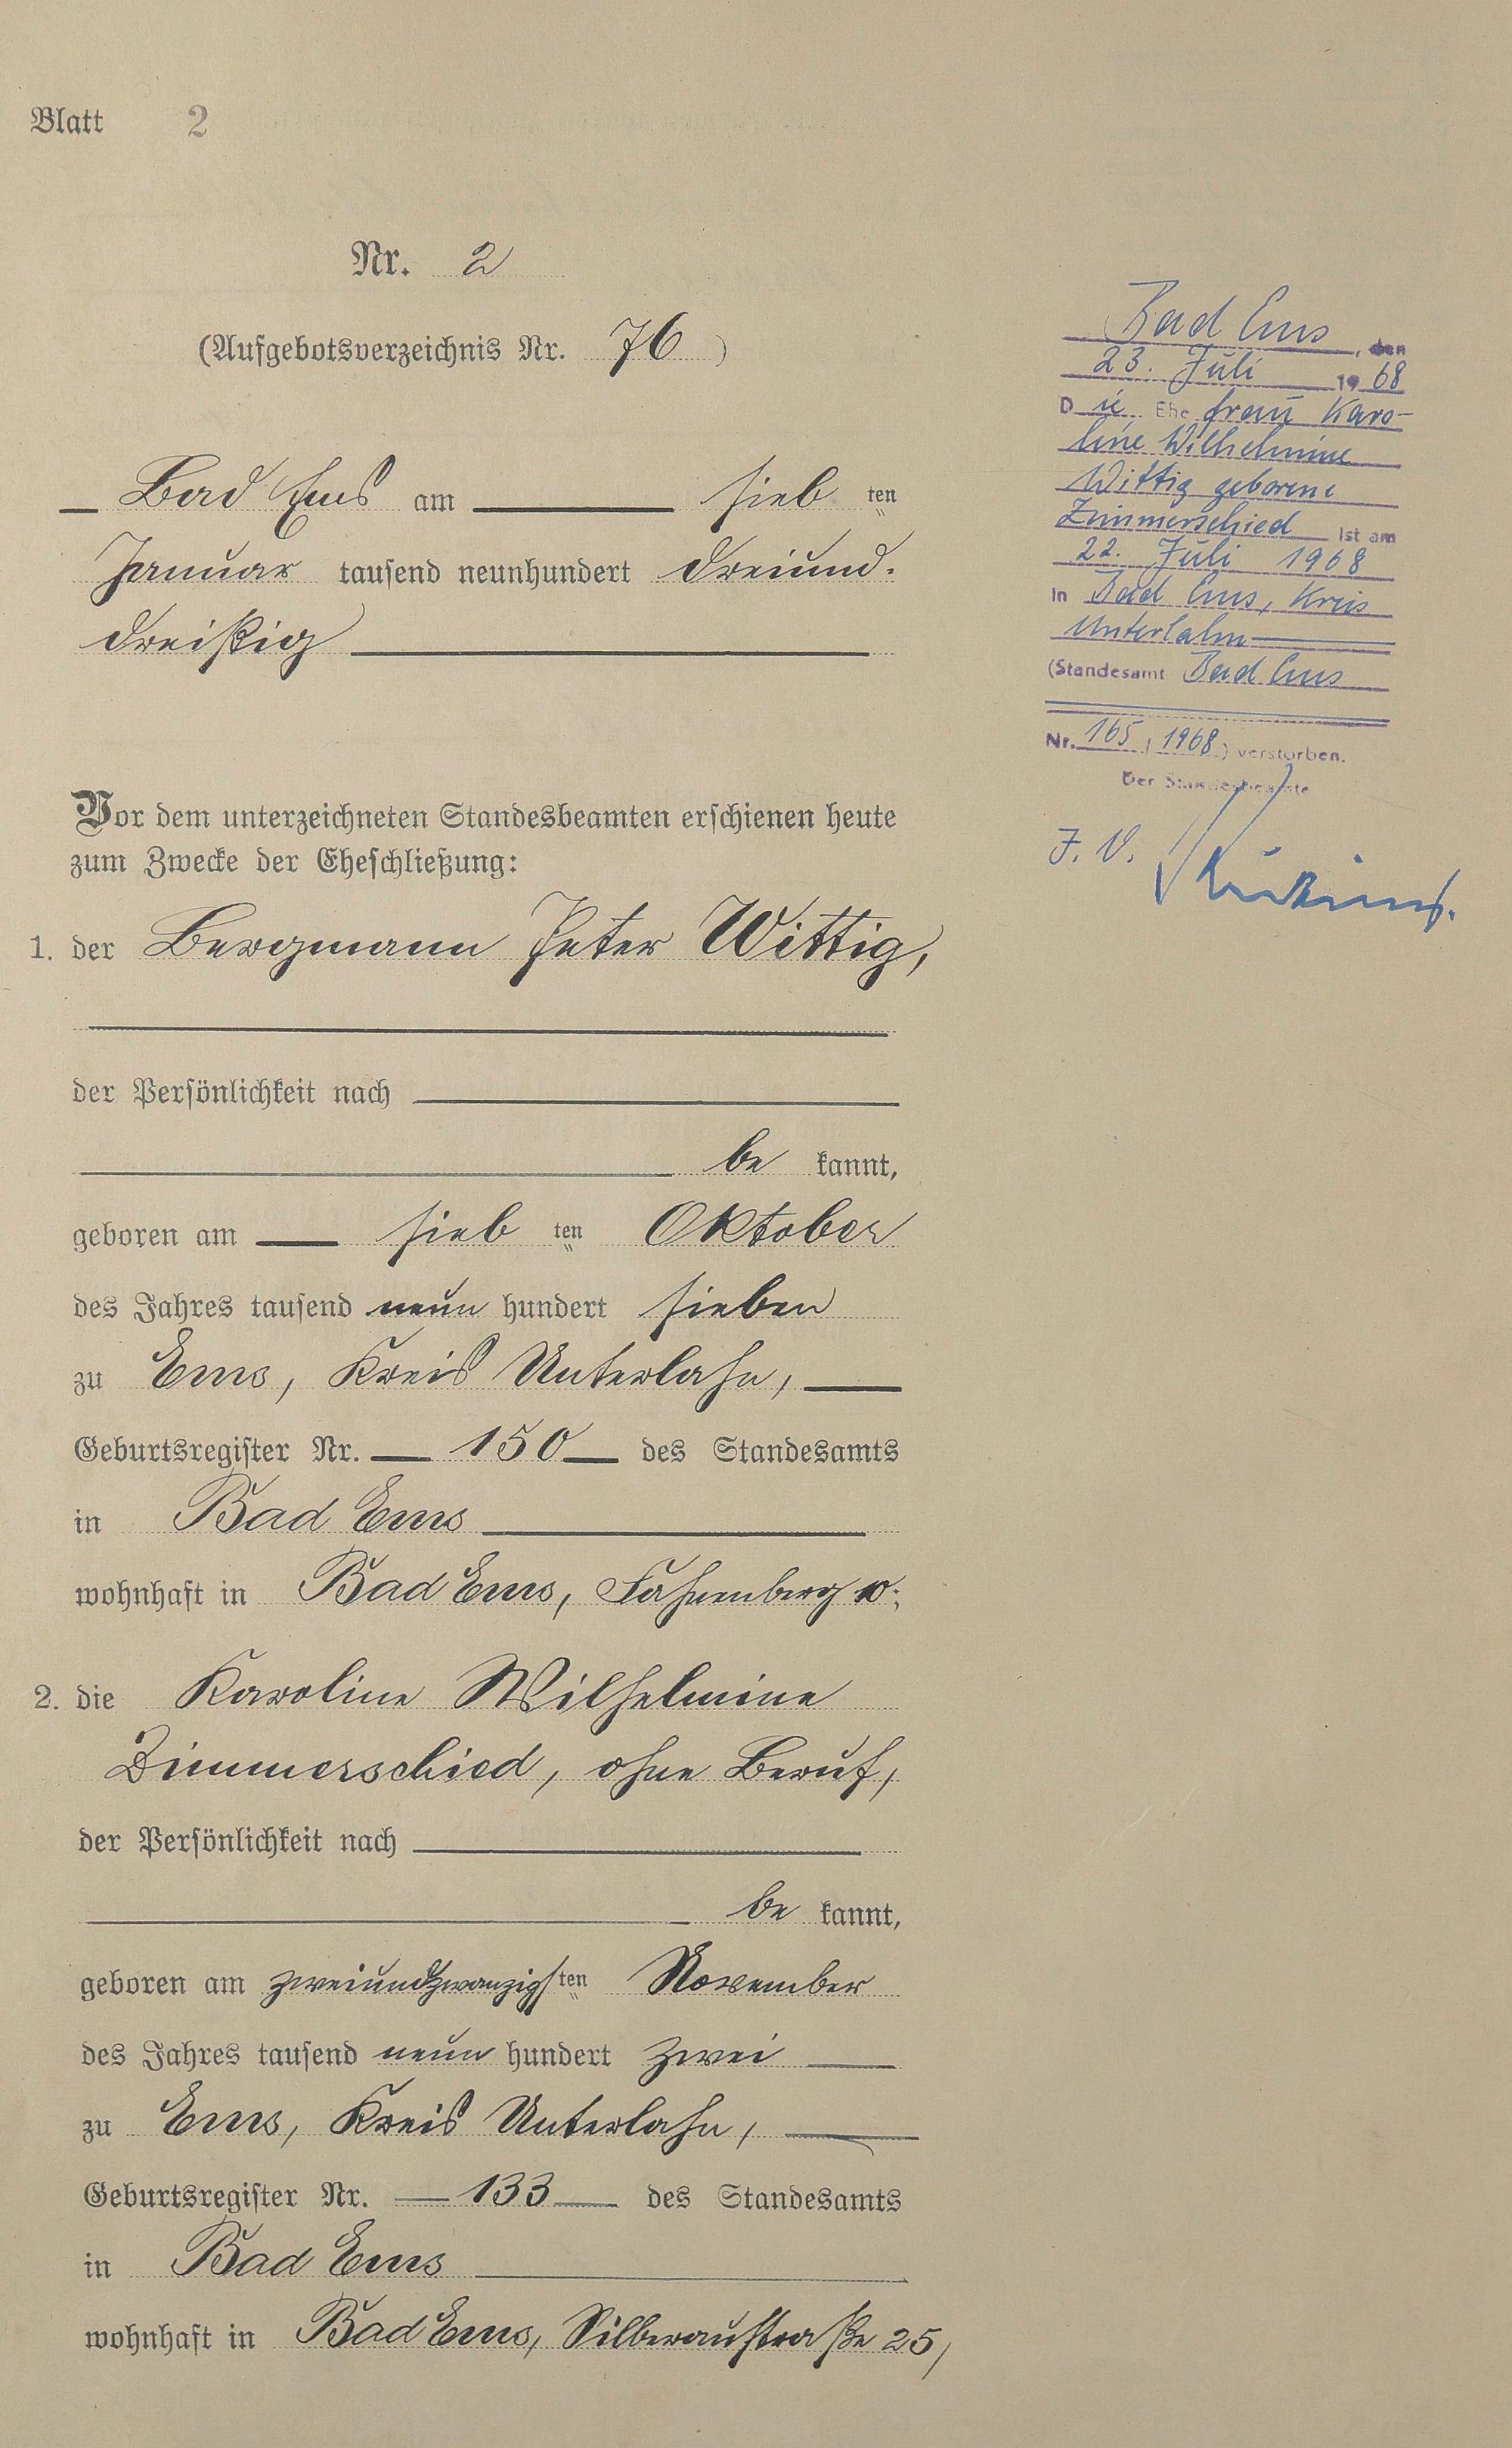 Blatt 2
Nr. 2
(Aufgebotsverzeichnis Nr. 76)
Bad Ems am sieb ten
Januar tausend neunhundert dreiund-
dreißig
Vor dem unterzeichneten Standesbeamten erschienen heute
zum Zwecke der Eheschließung:
1. der Bergmann Peter Wittig,
der Persönlichkeit nach
be kannt,
geboren am sieb ten Oktober
des Jahres tausend neun hundert sieben
zu Ems, Kreis Unterlahn,
Geburtsregister Nr. 150 des Standesamts
in Bad Ems
wohnhaft in Bad Ems, Fahnenberg 10;
2. die Karoline Wilhelmine
Zimmerschied, ohne Beruf,
der Persönlichkeit nach
be kannt,
geboren am zweiundzwanzigsten November
des Jahres tausend neun hundert zwei
zu Ems, Kreis Unterlahn,
Geburtsregister Nr. 133 des Standesamts
in Bad Ems
wohnhaft in Bad Ems, Silberaustraße 25,
Bad Ems, den
23. Juli 1968
Die Ehefrau Karo-
line Wilhelmine
Wittig geborene
Zimmerschied ist am
22. Juli 1968
in Bad Ems, Kreis
Unterlahn
(Standesamt Bad Ems
Nr. 165 / 1968) verstorben.
Der Standesbeamte
J. V.